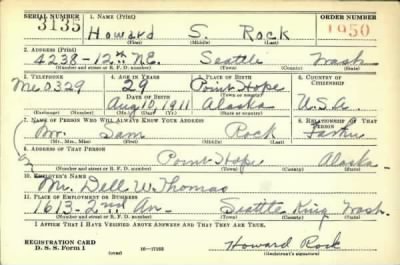 SERIAL NUMBER 1. NAME (Print) ORDER NUMBER
3135 Howard S. Rock 1950
(First) (Middle) (Last)
2. ADDRESS (Print)
4238-12th N.E. Seattle Wash
(Number and street or R. F. D. number) (Town) (County) (State)
3. TELEPHONE 4. AGE IN YEARS 5. PLACE OF BIRTH 6. COUNTRY OF CITIZENSHIP
Me 0329 29 Point Hope
DATE OF BIRTH (Town or county)
Aug 10, 1911 Alaska U.S.A.
(Exchange) (Number) (Mo.) (Day) (Yr.) (State or country)
7. NAME OF PERSON WHO WILL ALWAYS KNOW YOUR ADDRESS 8. RELATIONSHIP OF THAT PERSON
Mr. Sam Rock Father
(Mr., Mrs., Miss) (First) (Middle) (Last)
9. ADDRESS OF THAT PERSON
Point Hope Alaska
(Number and street or R. F. D. number) (Town) (County) (State)
10. EMPLOYER'S NAME
Mr. Dell W. Thomas
11. PLACE OF EMPLOYMENT OR BUSINESS
1613-2nd Av. Seattle King Wash.
(Number and street or R. F. D. number) (Town) (County) (State)
I AFFIRM THAT I HAVE VERIFIED ABOVE ANSWERS AND THAT THEY ARE TRUE.
REGISTRATION CARD
D. S. S. Form 1 (over) Howard Rock
(Registrant's signature)